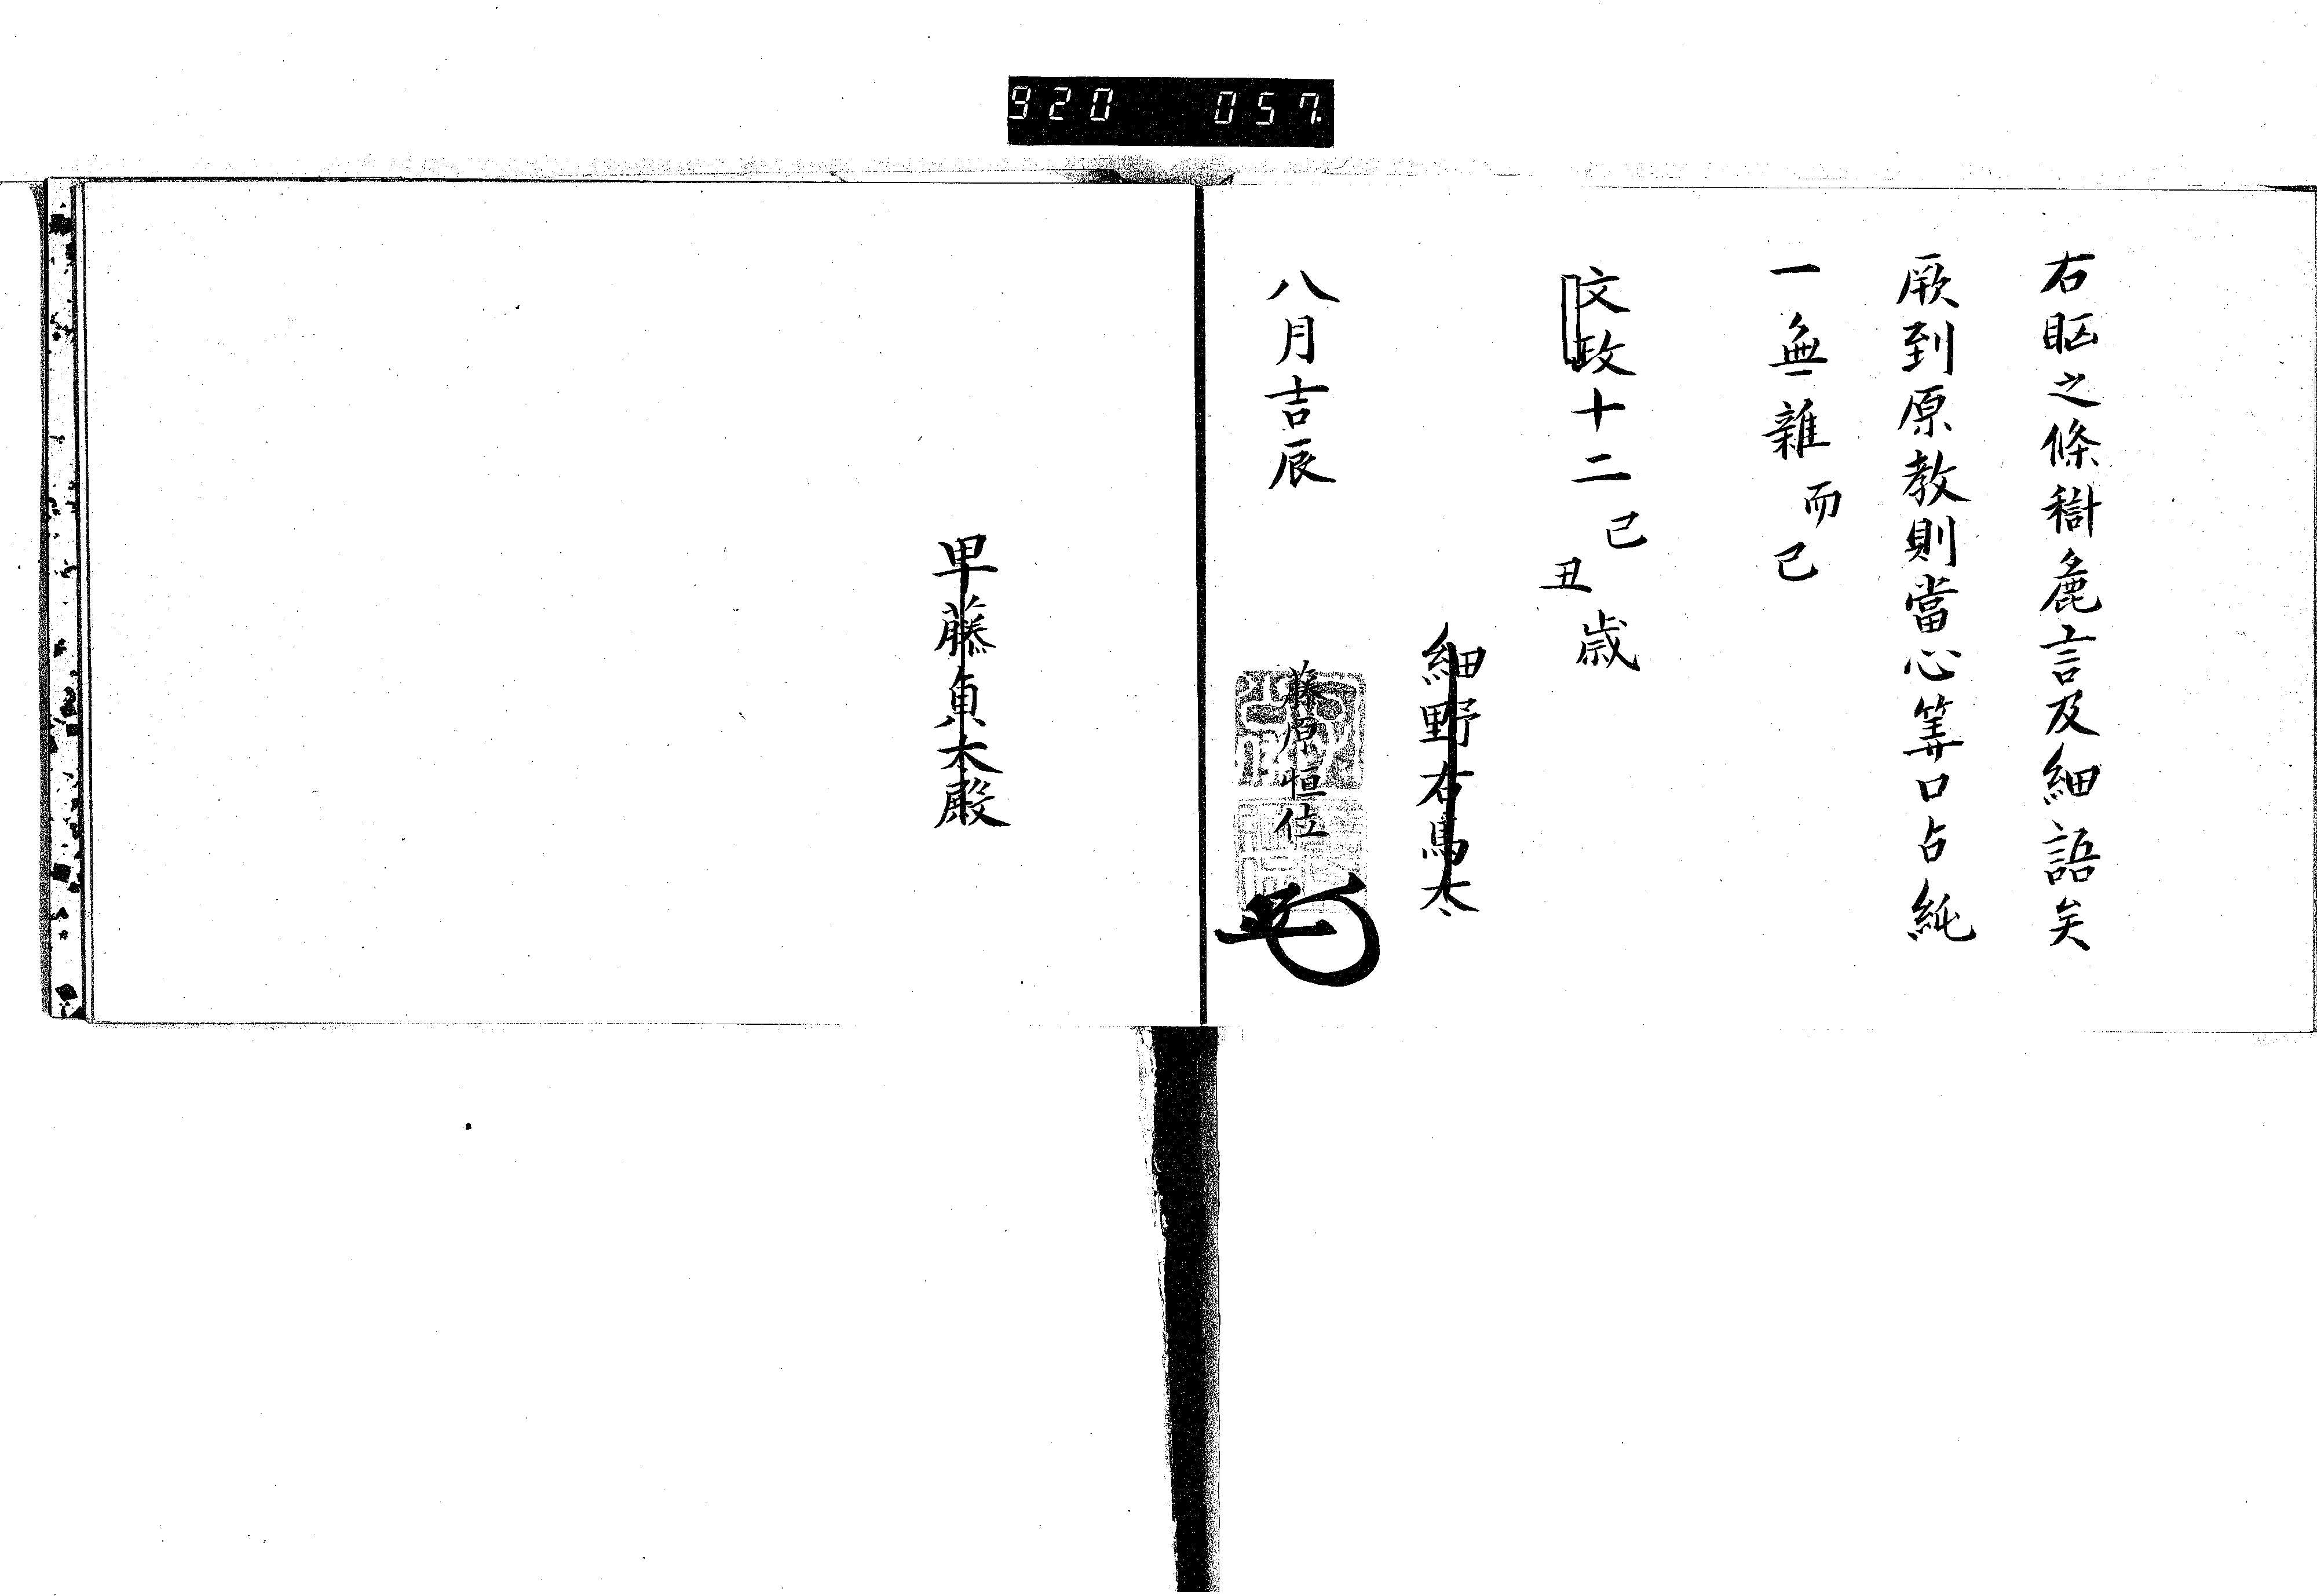 920 057.
右眍之條樹麁言及細語矣
厥到原教則當心筭口占純
一無雜而已
文政十二己丑歳
細野右馬太
八月吉辰
藤原恒位
早藤貞太殿